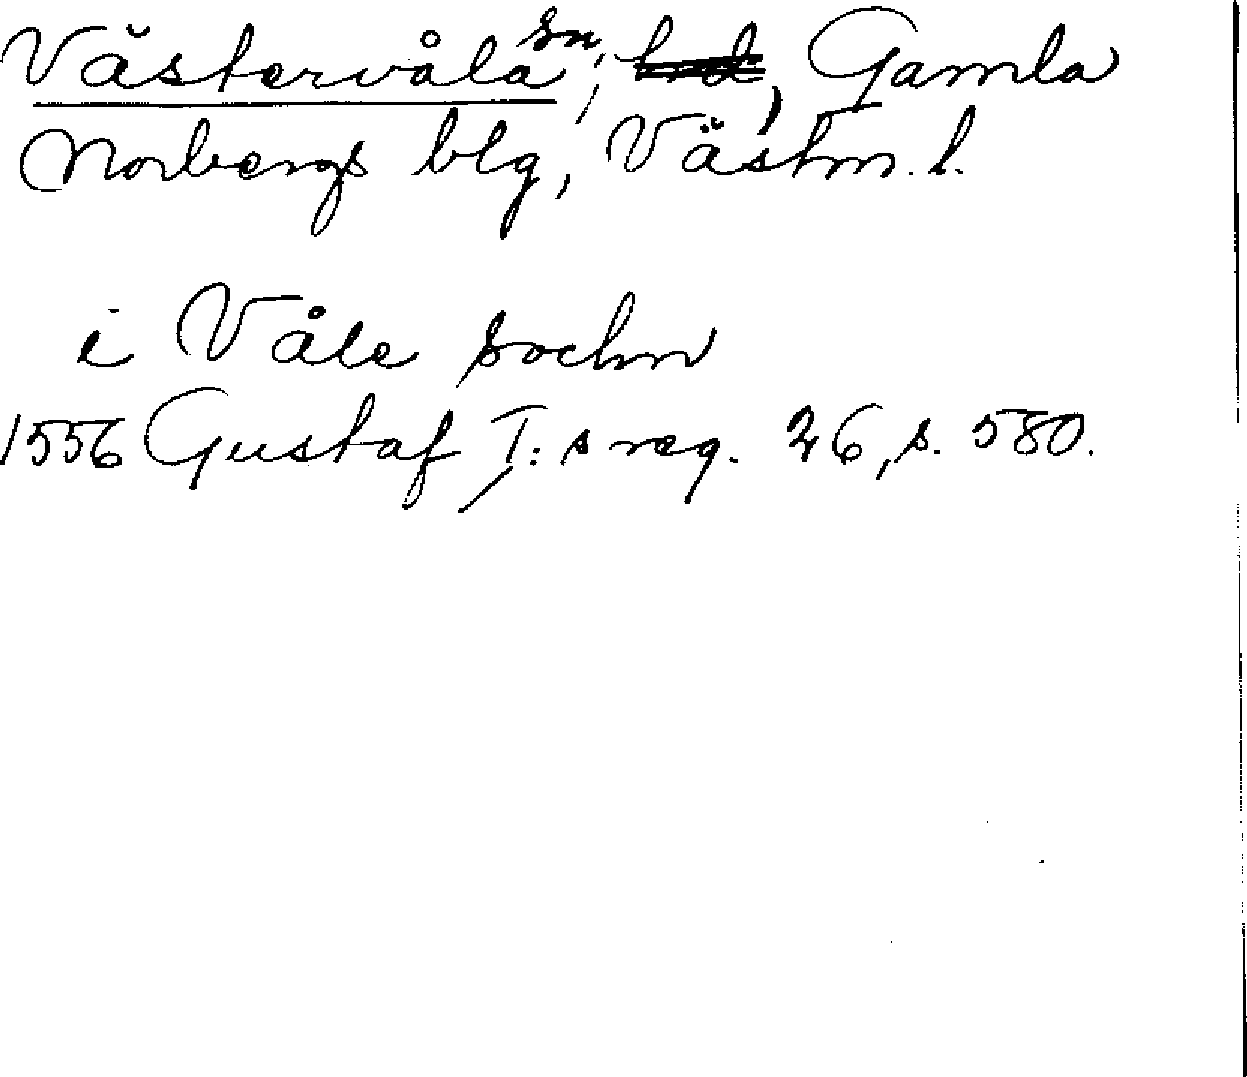 Västervåla sn, hrd, Gamla
Norbergs blg, Västm. l.
i Våle sochn
1556 Gustaf I:s reg. 26, s. 580.